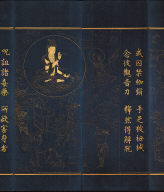 或囚禁枷鎖
手足被杻械
念彼觀音力
釋然得解脫
呪詛諸毒藥
所欲害身者